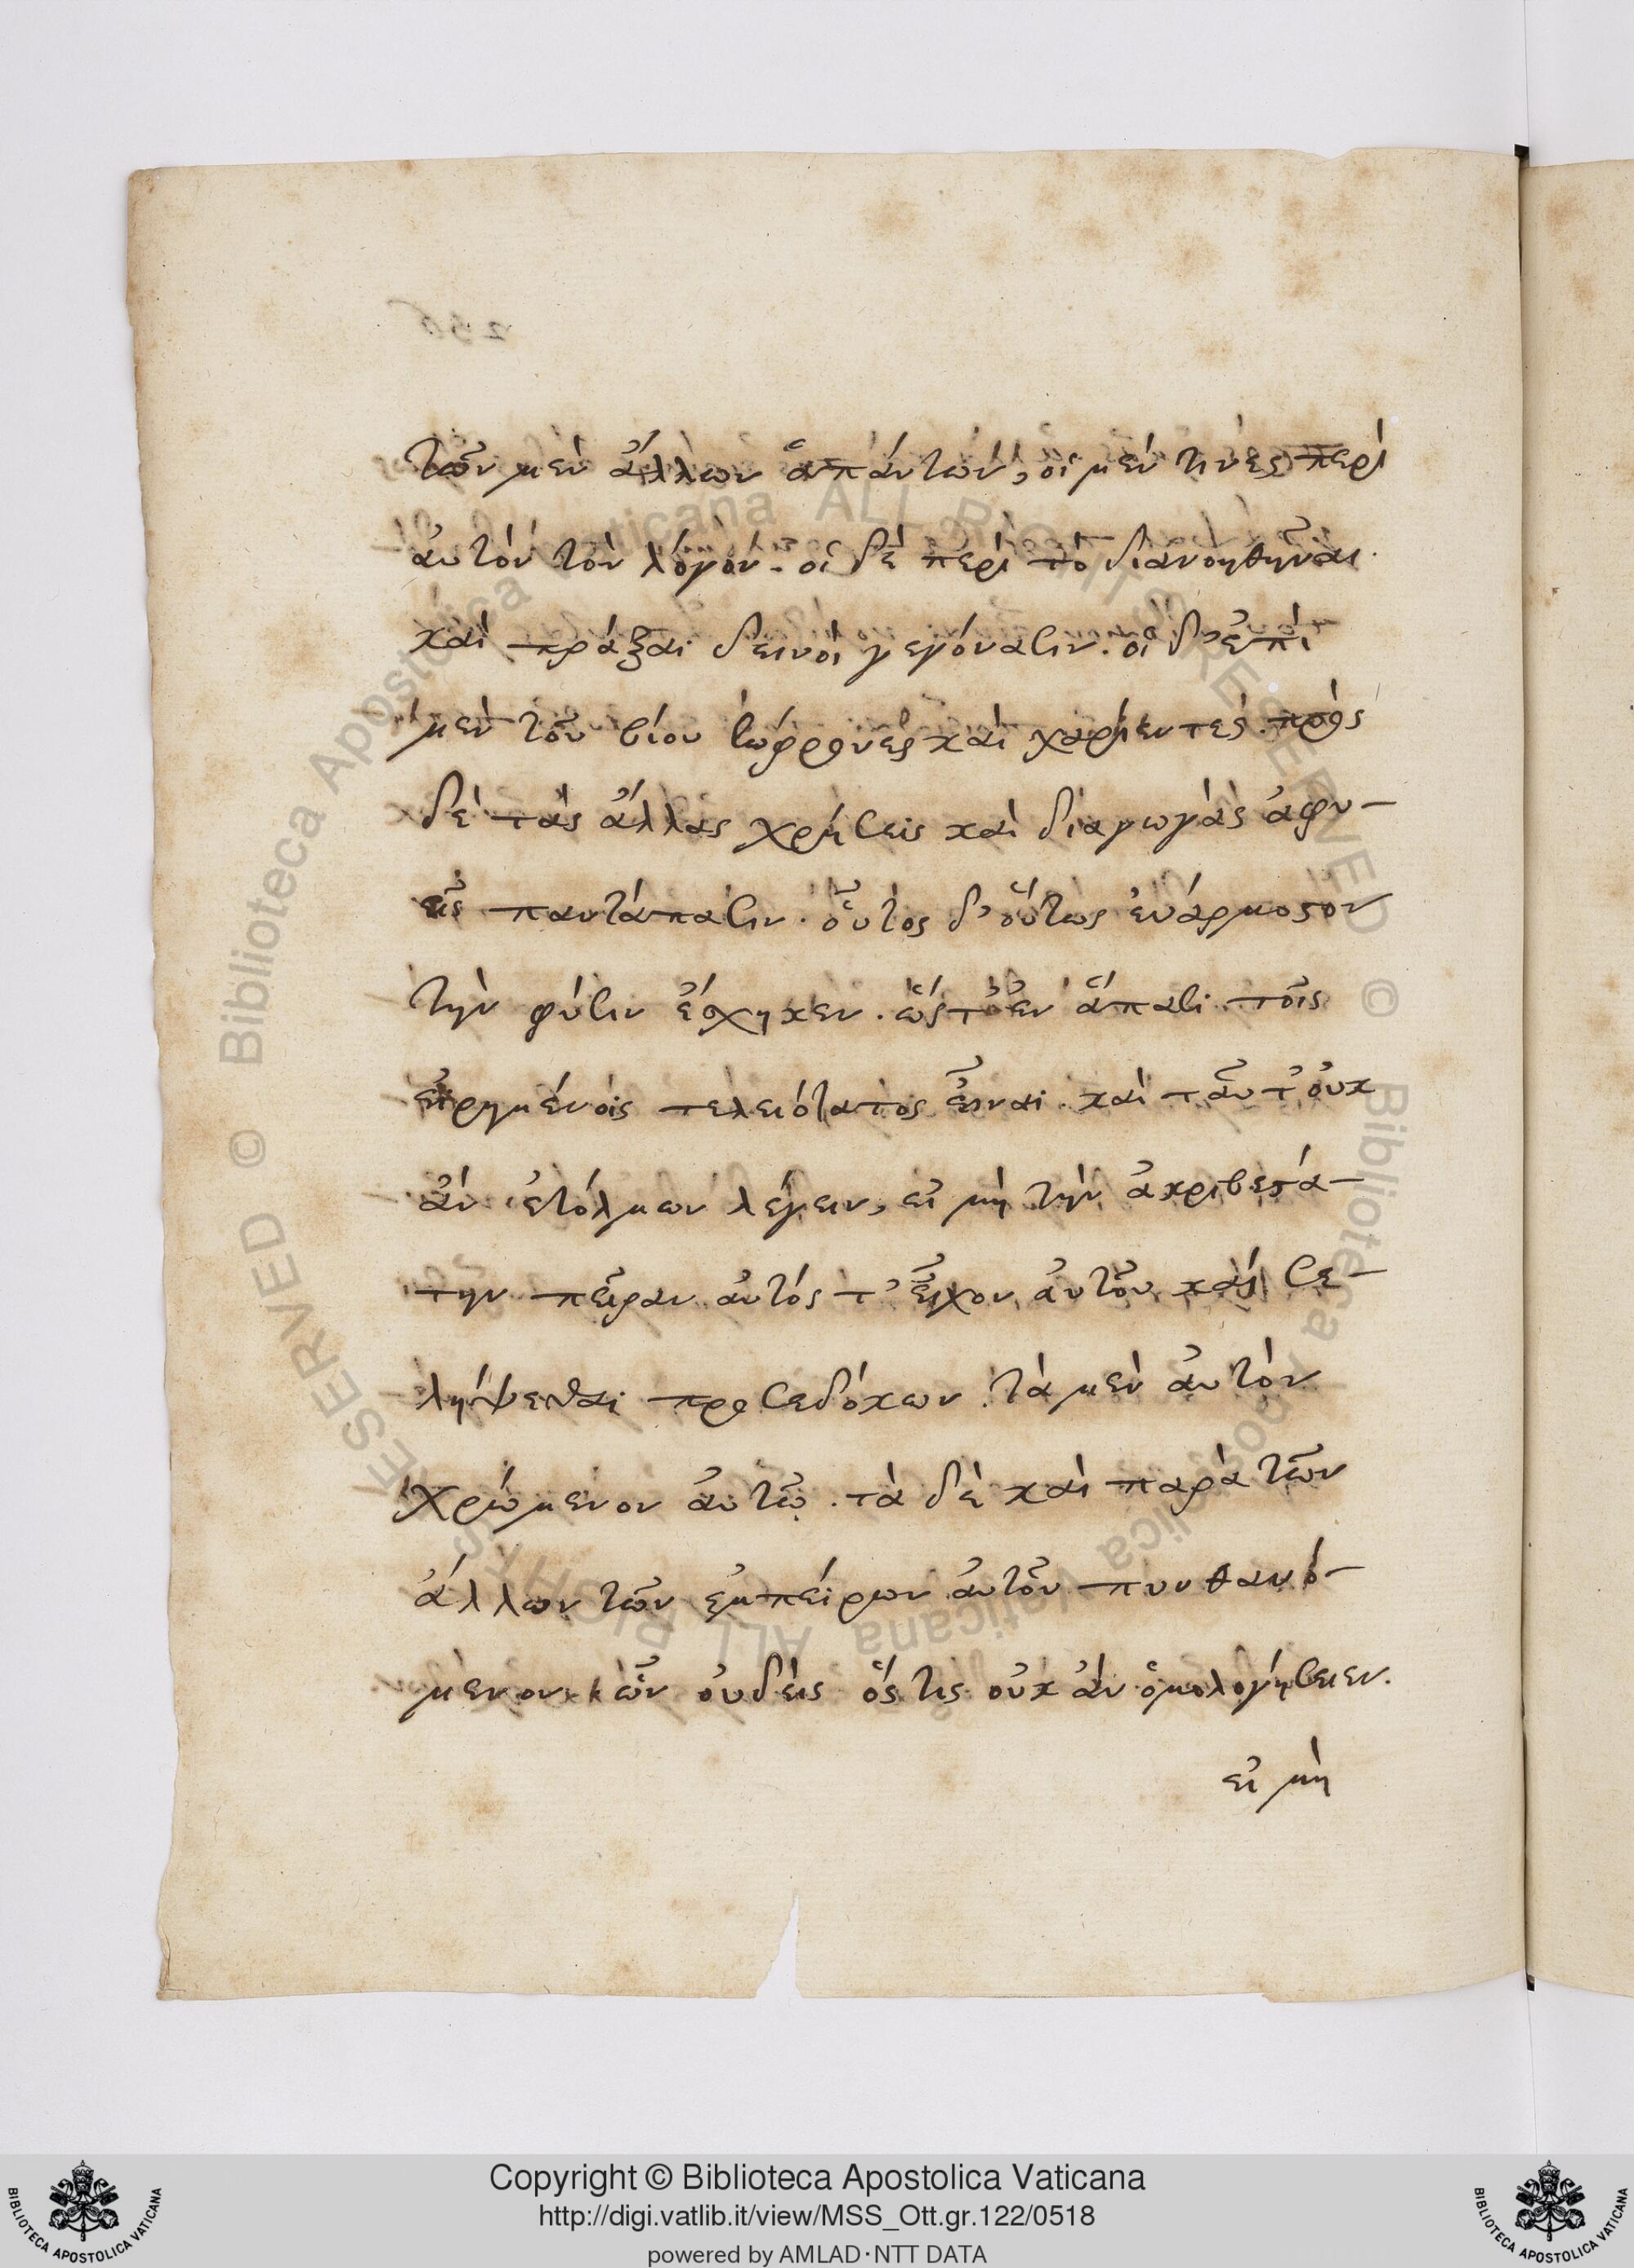 τῶν μὲν ἄλλων ἁπάντων, οἱ μέν τινες περὶ
αὐτὸν τὸν λόγον. οἱ δὲ περὶ τὸ διανοηθῆναι
καὶ πράξαι δεινοὶ γεγόνασιν. οἱ δ' ἐπὶ
μὲν τοῦ βίου σώφρονες καὶ χαρίεντες. πρὸς
δὲ τὰς ἄλλας χρήσεις καὶ διαγωγὰς ἀφυ-
εῖς παντάπασιν. οὗτος δ' οὕτως εὐάρμοστον
τὴν φύσιν ἔσχηκεν. ὥστ' ἐν ἅπασι τοῖς
εἰρημένοις τελειότατος εἶναι. καὶ ταῦτ' οὐκ
ἂν ἐτόλμων λέγειν, εἰ μὴ τὴν ἀκριβεστά-
την πεῖραν αὐτός τ' εἶχον αὐτοῦ, καὶ σε
λήψεσθαι προσεδόκων. τὰ μὲν αὐτὸν
χρώμενον αὐτῷ. τὰ δὲ καὶ παρὰ τῶν
ἄλλων τῶν ἐμπείρων αὐτοῦ πυνθανό-
μενον. ὧν οὐδεὶς ὅστις οὐκ ἂν ὁμολογήσειεν.
εἰ μὴ
Copyright © Biblioteca Apostolica Vaticana
http://digi.vatlib.it/view/MSS_Ott.gr.122/0518
powered by AMLAD·NTT DATA